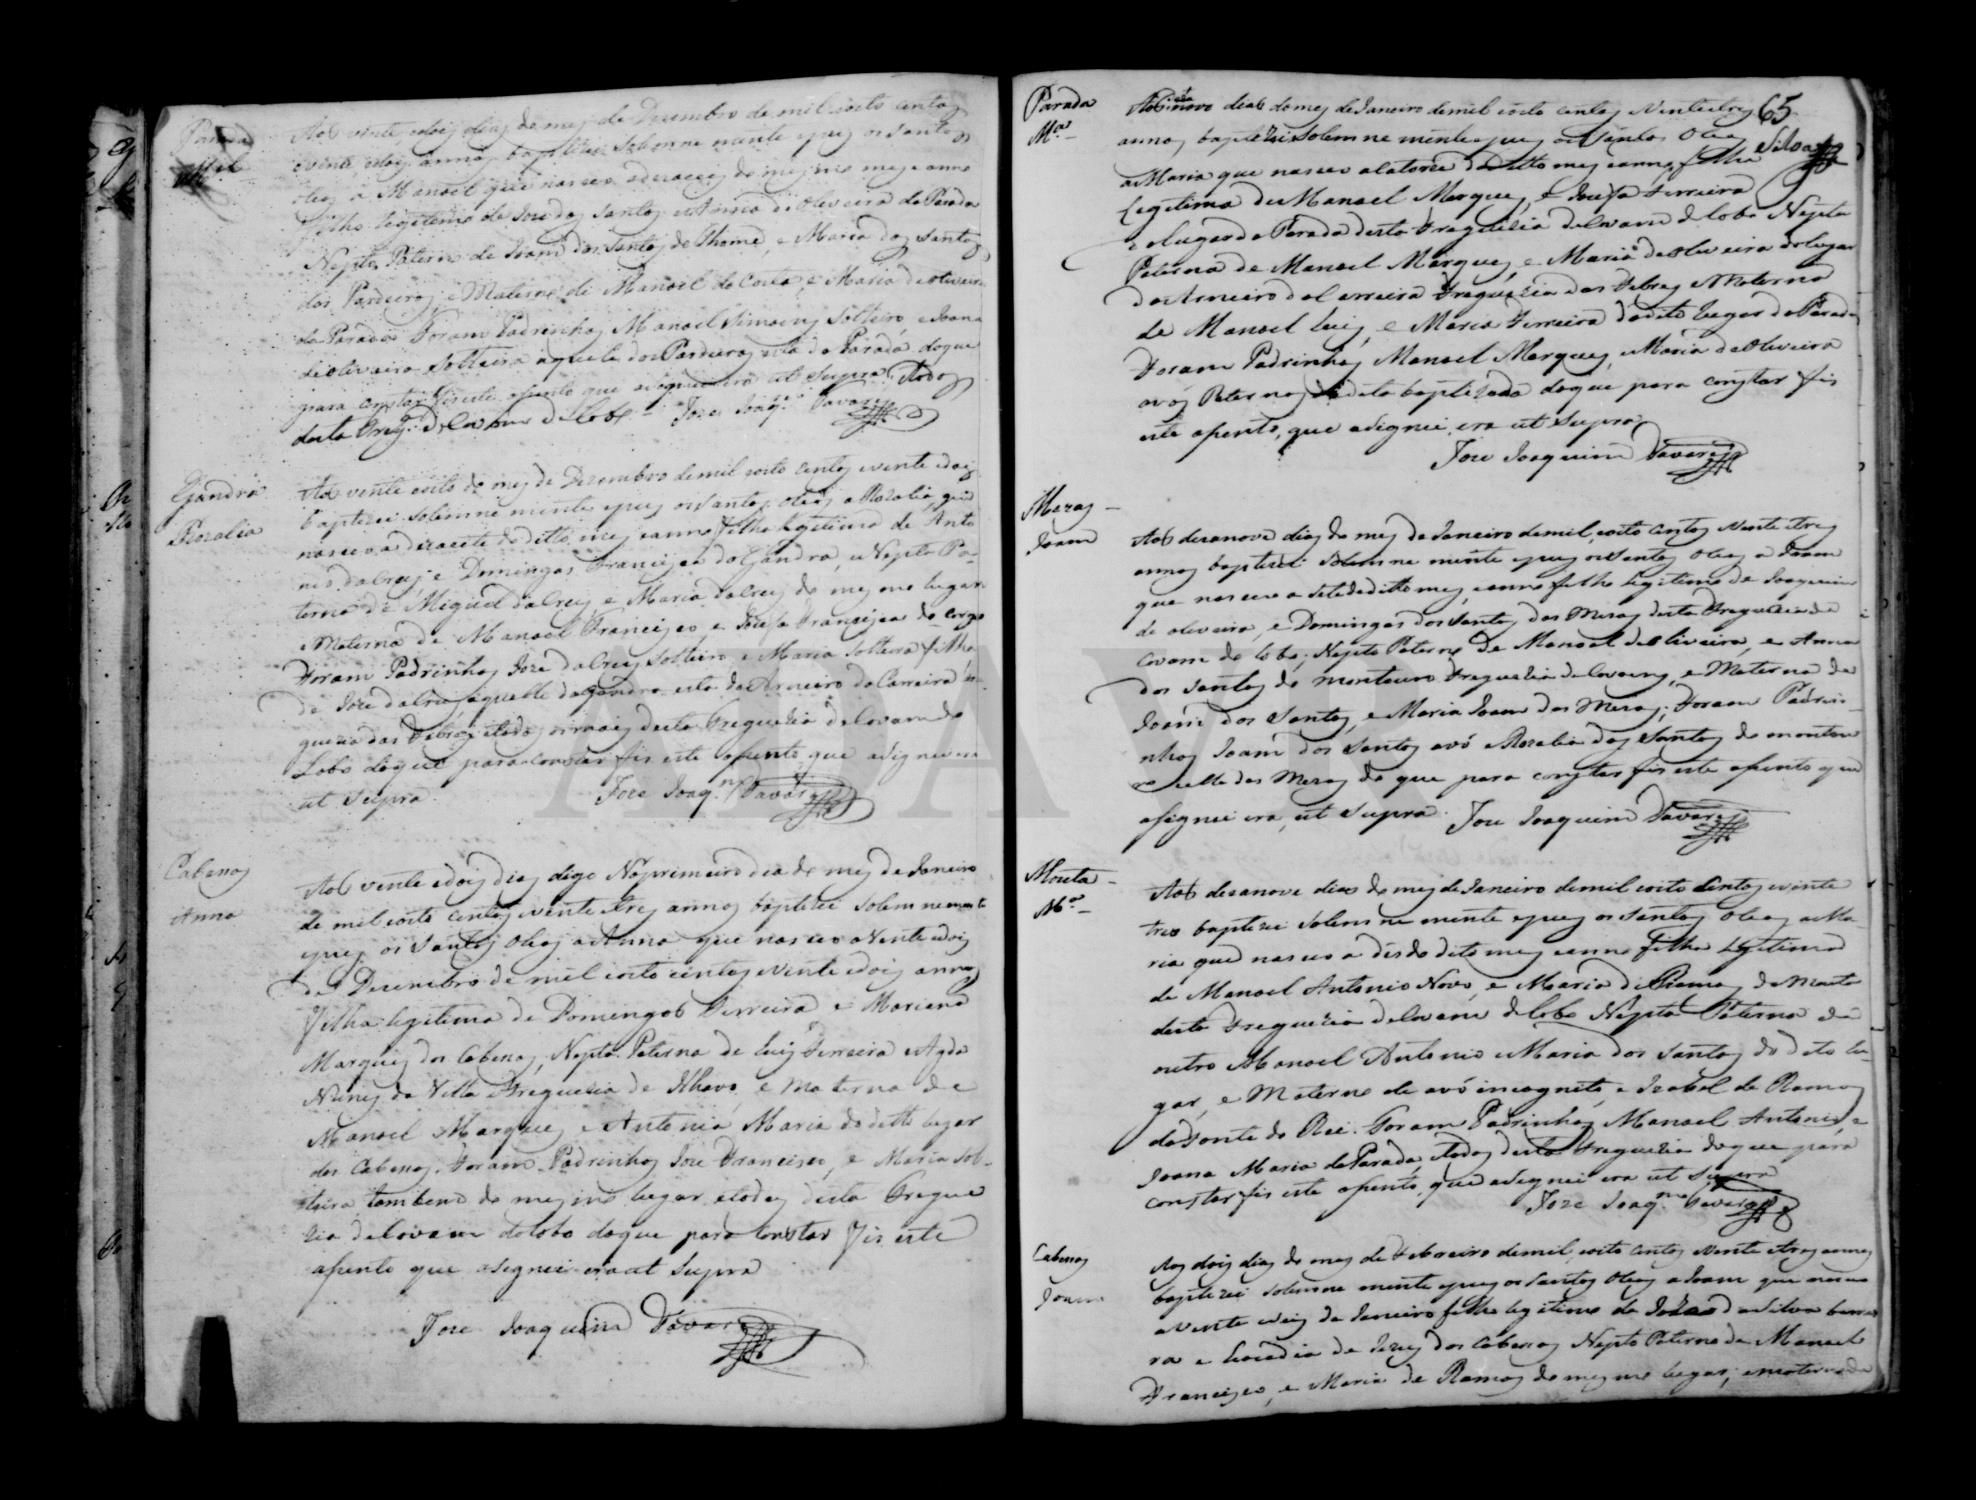 Parada
Mel
Aos vinte edois dias do mes de Dezembro de mil eoito centos
evinte edois annos baptizei solemne mente epus os santos
oleos a Manoel que nasceo adezaceis do mesmo mes e anno
filho legitimo de Joze dos Santos e Anna de Oliveira da Parada
Nepto Paterno de Joam dos Santos de Thomé, e Maria dos Santos
dos Pardeiros, e Materno de Manoel da Costa, e Maria de oliveira
da Parada Foram Padrinhos Manoel Simoens Solteiro, e Joana
de oliveira solteira aquele dos Pardeiros esta da Parada, doque
para constar fis este asento que asignei era ut supra. Todos
desta Freg.ª de Covam do Lobo - Joze Joaq.m Tavares
Gandra
Rozalia
Aos vente eoito do mes de Dezembro de mil eoito centos evinte edois
baptizei solemne mente epus os santos oleos a Rozalia que
nasceo a dezacete do ditto mes eanno filha legitima de Anto
nio dalrey, e Domingas Francisca da Gandra, e Nepta Pa-
terna de Miguel dalrey, e Maria dalrey do mesmo lugar
e Materna de Manoel Francisco, e Josefa Francisca do corgo
Foram Padrinhos Joze dalrey solteiro, e Maria solteira filha
de Joze dalrey, aquelle da gandra esta do Arneiro da Carreira fre
guezia das Febres etodos os mais desta Freguezia de Covam do
Lobo doque para constar fis este asento que asignei era
ut supra. Joze Joaq.m Tavares
Cabesas
Anna
Aos vente edois dias digo No primeiro dia do mes de Janeiro
de mil eoito centos evente etres annos baptizei solemne mente
epus os santos oleos a Anna que nasceo a Vente edois
de Dezembro de mil eoito centos evente edois annos
filha legitima de Domingos Ferreira e Mariana
Marques dos Cabesas, Nepta Paterna de Luis Ferreira e Agda
Nunes da Villa Freguezia de Ilhavo, e materna de
Manoel Marques e Antonia Maria do ditto lugar
dos Cabesas. Foram Padrinhos Joze Francisco, e Maria sol-
teira tambem do mesmo lugar etodos desta Fregue
zia de Covam do lobo doque para constar fis este
asento que asignei era ut supra
Joze Joaquim Tavares
65
Silva
Parada
M.ª
Aos nove dias do mes de Janeiro de mil eoito centos Vente etres
annos baptizei solemne mente epus os Santos Oleos
a Maria que nasceo a catorze do ditto mes eanno, filha
Legitima de Manoel Marques, e Josefa Ferreira
do lugar da Parada desta Freguezia de Covam do lobo Nepta
Paterna de Manoel Marques, e Maria de oliveira do lugar
do Arneiro da Carreira Freguezia das Febres e Materna
de Manoel Luis, e Maria Ferreira do dito lugar da Parada
Foram Padrinhos Manoel Marques, e Maria de Oliveira
avos Paternos da dita baptizada doque para constar fis
este asento, que asignei, era ut supra
Joze Joaquim Tavares
Mezas
Joam
Aos dezanove dias do mes de Janeiro de mil, eoito centos Vente etres
annos baptizei solemne mente epus os santos oleos a Joam
que nasceo a sete do ditto mes, eanno filho legitimo de Joaquim
de oliveira, e Domingas dos Santos das Mezas desta Freguezia de
Covam do lobo, Nepto Paterno de Manoel de oliveira, e Anna
dos Santos do montouro Freguezia de Covoens, e Materno de
Joam dos Santos, e Maria Joam das Mezas; Foram Padri-
nhos Joam dos Santos avó e Rozalia dos Santos do montou
ro elle das Mezas do que para constar fis este asento que
asignei era, ut supra. Joze Joaquim Tavares
Mouta
M.ª
Aos dezanove dias do mes de Janeiro de mil eoito Centos evinte
tres baptizei solemne mente epus os santos oleos a Ma
ria que nasceo a des do dito mes eanno filha Legitima
de Manoel Antonio Novo, e Maria de Ramos da Mouta
desta Freguezia de Covam do lobo Nepta Paterna de
outro Manoel Antonio e Maria dos santos do dito lu-
gar, e Materna de avó incognito, e Izabel de Ramos
da Fonte do Rei. Foram Padrinhos Manoel Antonio, e
Joana Maria da Parada, todos desta Freguezia doque para
constar fis este asento, que asignei era ut supra
Joze Joaq.m Tavares
Cabesas
Joam
Aos dois dias do mes de Febreiro de mil, eoito centos vente etres annos
baptizei solemne mente epus os santos oleos a Joam que nasceo
a vente e seis de Janeiro filho legitimo de Joze da Silva
ra e Leocadia de Jezus dos Cabesas Nepto Paterno de Manoel
Francisco, e Maria de Ramos do mesmo lugar, e materno de